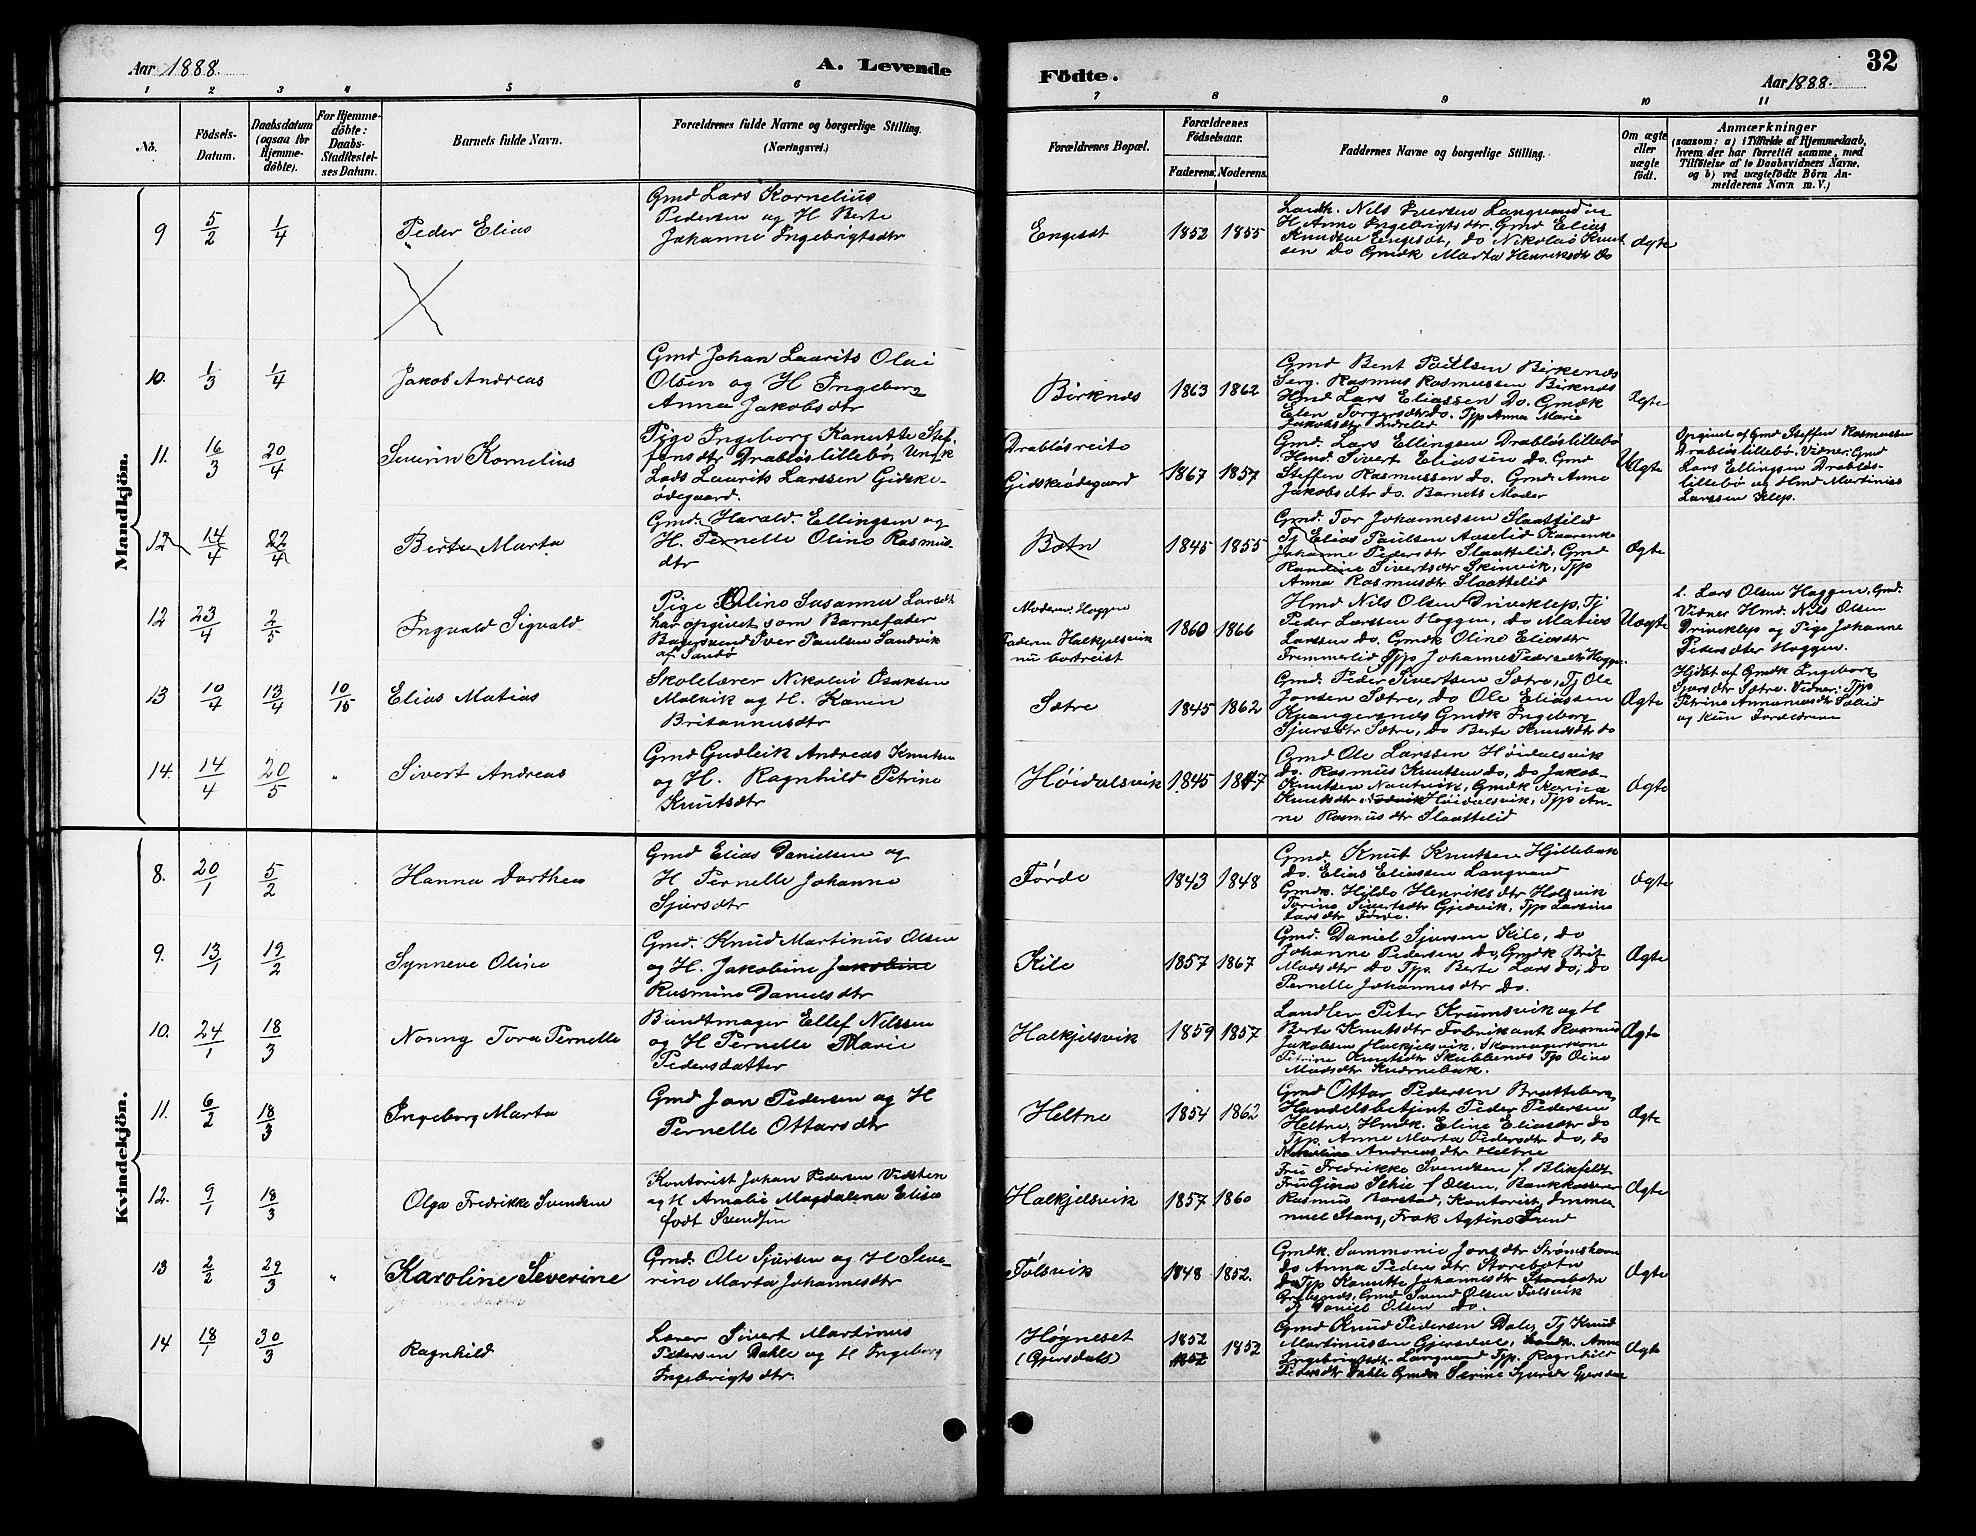 Aar 1888.
A. Levende
Födte.
Aar 1888.
32
1 2 3 4 5 6
7 8 9 10 11
No.
Födsels-
Datum.
Daabsdatum
(ogsaa for
Hjemme-
döbte).
For Hjemme-
döbte:
Daabs-
Stadfæstel-
ses Datum.
Barnets fulde Navn.
Forældrenes fulde Navne og borgerlige Stilling.
(Næringsvei.)
Forældrenes Bopæl.
Forældrenes
Födselsaar.
Faderens. Moderens.
Faddernes Navne og borgerlige Stilling.
Om ægte
eller
uægte
født.
Anmærkninger
(saasom: a) i Tilfælde af Hjemmedaab,
hvem der har forrettet samme, med
Tilföielse af to Daabsvidners Navne,
og b) ved uægtefödte Börn An-
melderens Navn m. V.)
Mandkjön.
9 5/2 1/4 Peder Elias
Gmd Lars Kornelius
Pedersen og H Berte
Johanne Ingebrigtsdtr
Engeset 1852 1855
Landh. Nils Iversen Langvand og
H Anne Ingebrigtsdtr. Gmd Elias
Knudsen Engeset, do Nikolai Knut
sen do Gmdk Marta Henriksdtr do
Ægte
10. 1/3 1/4 Jakob Andreas
Gmd Johan Laurits Olai
Olsen og H Ingeborg
Anna Jakobsdtr
Birknes 1863 1862
Gmd Bent Paulsen Birkenes
Serg. Rasmus Rasmussen Birknes
Hmd Lars Eliassen Do. Gmdk
Elen Torgersdtr do. Typ Anna Marie
Jakobsdtr Indrelid
Ægte
11. 16/3 20/4 Severin Kornelius
Pige Ingeborg Kanutte Stef-
fensdtr Drabløslillebø, Ungk
Lods Laurits Larssen Gidske-
ødegaard.
Drabløsreite
Gidskeødegaard 1867 1857
Gmd. Lars Ellingsen Drabløslillebø
Hmd Sivert Eliassen do. Gmd
Steffen Rasmussen do. Gmd. Anne
Jakobsdtr do. Barnets Moder
Uægte
Opgivet af Gmd Steffen Rasmussen
Drabløslillebø. Vidner: Gmd
Lars Ellingsen Drabløs-
lillebø og Hmd Martinius
Larssen Klep.
12 14/4 22/4 Berte Marta
Gmd. Harald. Ellingsen og
H. Pernelle Oline Rasmus-
dtr
Botn 1845 1855
Gmd. Tor Johannessen Slaattelid
Tj Elias Paulsen Aaselid Kaarenke
Johanne Pedersdtr Slaattelid, Gmd
Randine Sivertsdtr Skinvik, Typ
Anna Rasmusdtr Slaattelid
Ægte
12 23/4 2/5 Ingvald Sigvald
Pige Oline Susanna Larsdtr
har opgivet som Barnefader
Bagersvend Iver Paulsen Sandvik
af Sandø
Moderen: Hoggen
Faderen Halkjelsvik
nu bortreist 1860 1866
Hmd Nils Olsen Driveklep, Tj
Peder Larssen Hoggen, do Matias
Larssen do. Gmdk Oline Eliasdtr
Fremmerlid Typ Johanne Pedersdtr Hoggen
Uægte
l. Lars Olsen Hoggen, Gmd.
Vidner Hmd. Nils Olsen
Driveklep og Pige Johanne
Petersdtr Hoggen.
13 10/4 13/4 10/15 Elias Matias
Skolelærer Nikolai Isaksen
Malvik og H. Karen
Britannusdtr
Sætre 1845 1862
Gmd. Peder Sivertsen Sætre, Tj Ole
Jonsen Sætre, do Ole Eliassen
Kjeangersnes Gmdk Ingeborg
Sjursdtr Sætre, do Berte Knudsdtr do
Ægte
Hjdøbt af Gmdk Ingeborg
Sjursdtr Sætre. Vidner: Typ
Petrine Annaniasdtr Sælid
og Kun Forældrene
14. 14/4 20/5 " Sivert Andreas
Gmd Gudleik Andreas Knutsen
og H. Ragnhild Petrine
Knutsdtr
Høidalsvik 1845 1847
Gmd Ole Larssen Høidalsvik
do. Rasmus Knutsen do, do Jakob
Knutsen Nautvik, Gmdk Karine
Knutsdtr Høidalsvik, Typ An-
ne Rasmusdtr Slaattelid
Ægte
Kvindekjön.
8. 20/1 5/2 Hanna Dorthea
Gmd Elias Danielsen og
H Pernelle Johanne
Sjursdtr
Førde 1843 1848
Gmd. Knut Knutsen Hjellebak
do. Elias Eliassen Langvand
Gmdk. Hilde Henriksdtr Holsvik
Torine Sivertsdtr Gjedvik, Typ Larsine
Larsdtr Førde.
Ægte
9. 13/1 19/2 Synneve Oline
Gmd. Knud Martinus Olsen
og H. Jakobine Jakobine
Rasmine Danielsdtr
Kile 1857 1867
Gmd. Daniel Sjursen Kile, do
Johanne Pedersen Do, Gmdk Brit
Madsdtr Do Typ. Berte Lars do, do
Pernelle Johannesdtr Do.
Ægte
10. 24/1 18/3 Nonny Tora Pernelle
Bundtmager Ellef Nilssen
og H Pernelle Marie
Pedersdatter
Halkjelsvik 1859 1857
Landler Peter Krumsvik og H
Berte Knutsdtr Fabrikant Rasmus
Jakobsen Halkjelsvik, Skomagerkone
Petrine Knutsdtr Skibbenes Typ Oline
Madsdtr Kvernebak.
Ægte
11. 6/2 18/3 Ingeborg Marta
Gmd Jon Pedersen og H
Pernelle Ottarsdtr
Heltne 1854 1862
Gmd Ottar Pedersen Bratteberg,
Handelsbetjent Peder Pedersen
Heltne, Hmdk. Eline Eliasdtr do
Typ. Anne Marta Pedersdtr do, do
Nikoline Andreasdtr Heltne
Ægte
12. 9/1 18/3 Olga Fredrikke Svendsen
Kontorist Johan Pedersen Vidsteen
og H Amalie Magdalena Elise
født Svendsen
Halkjelsvik 1857 1860
Fru Fredrikke Svendsen f. Blikfeldt
Fru Gina Sehie f Olsen, Bankkasserer
Rasmus Barstad, Kontorist Imma-
nuel Stang, Frøk Agtine Svend
Ægte
13 2/2 29/3 " Karoline Severine
Gmd. Ole Sjursen og H Seve-
rine Marta Johannesdtr
Folsvik 1848 1852.
Gmdk. Sammonie Jonsdtr Strømshavn
do Anna Pedersdtr. Storebotn
do Typ Kanutte Johannesdtr Storebotn
Grebsnes, Gmd Svend Olsen Folsvik
Tj Daniel Olsen do.
Ægte
14 18/1 30/3 Ragnhild
Lærer Sivert Martinus
Pedersen Dahle og H Ingeborg
Ingebrigtsdtr.
Høgneset
(Gjersdals) 1852 1852
Gmd Knud Pedersen Dale, Tj Knud
Martinussen Gjersdale, Landk. Anne
Ingebrigtsdtr Langvand Typ. Ragnhild
Pedersdtr Dahle Gmdk Serine Sjursdtr Gjersdal
Ægte